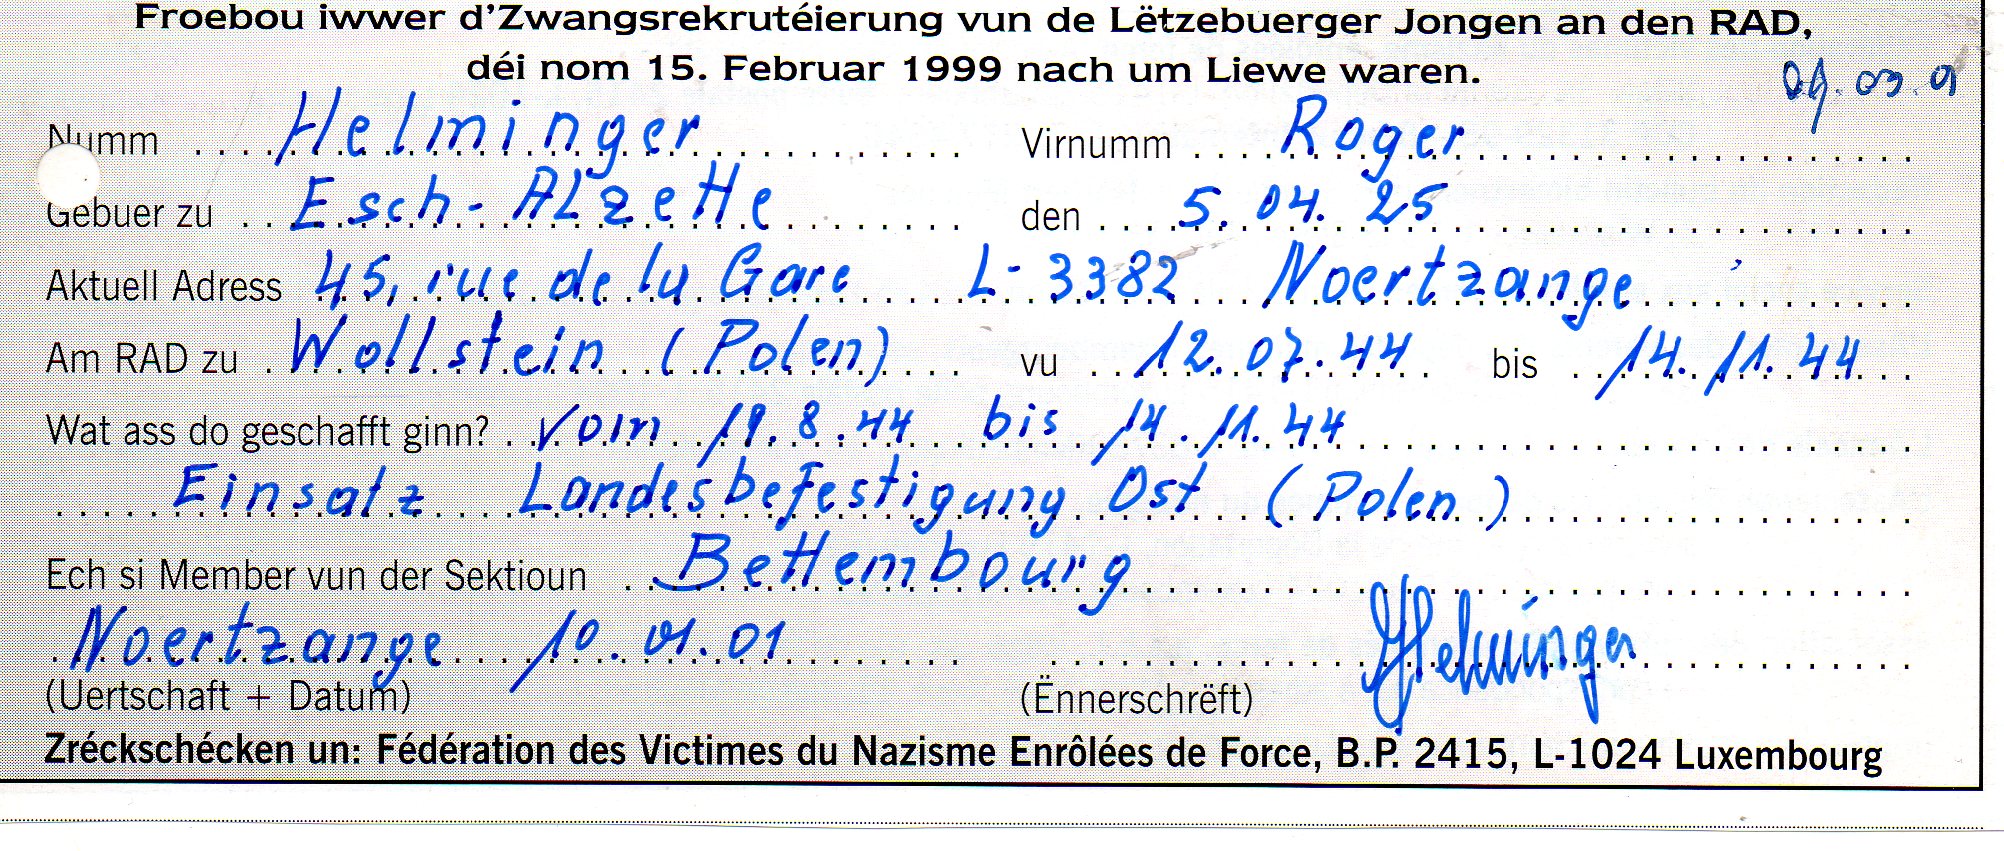 Froebou iwwer d'Zwangsrekrutéierung vun de Lëtzebuerger Jongen an den RAD,
déi nom 15. Februar 1999 nach um Liewe waren.
09.03.01
Numm Helminger Virnumm Roger
Gebuer zu Esch-Alzette den 5.04.25
Aktuell Adress 45, rue de la Gare L-3382 Noertzange
Am RAD zu Wollstein (Polen) vu 12.07.44 bis 14.11.44
Wat ass do geschafft ginn? vom 19.8.44 bis 14.11.44
Einsatz Landesbefestigung Ost (Polen)
Ech si Member vun der Sektioun Bettembourg
Noertzange 10.01.01 Helminger
(Uertschaft + Datum) (Ënnerschrëft)
Zréckschécken un: Fédération des Victimes du Nazisme Enrôlées de Force, B.P. 2415, L-1024 Luxembourg